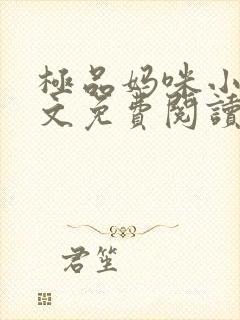 極品妈咪小
文免費閱讀
君笙